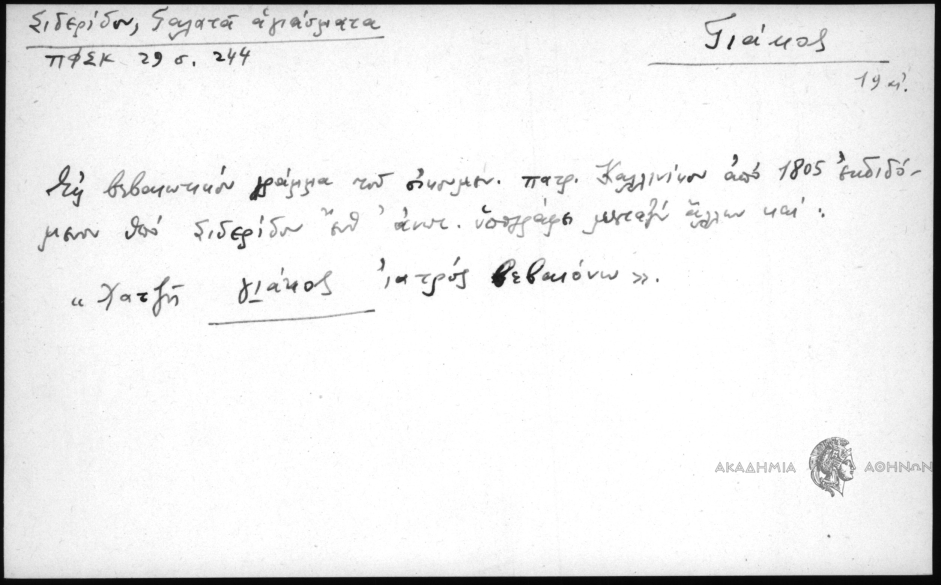 Σιδερίδου, Γαλατᾶ ἁγιάσματα
ΠΦΣΚ 29 σ. 244
Γιάκος
19 αἰ.
Τῇ βεβαιωτικόν γράμμα τοῦ οἰκουμεν. πατρ. Καλλινίκου ἀπό 1805 ἐκδιδό-
μενον ὑπό Σιδερίδου ἔνθ' ἀνωτ. ὑπογράφει μεταξύ ἄλλων καί:
« Χατζῆ γιάκος ἰατρός βεβαιόνω ».
ΑΚΑΔΗΜΙΑ ΑΘΗΝΩΝ